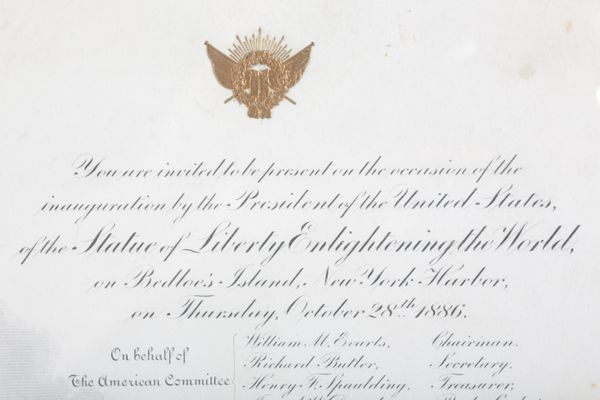 You are invited to be present on the occasion of the
inauguration by the President of the United States,
of the Statue of Liberty Enlightening the World,
on Bedloe's Island, New York Harbor,
on Thursday, October 28th 1886.
On behalf of
The American Committee
William M. Evarts, Chairman.
Richard Butler, Secretary.
Henry F. Spaulding, Treasurer,